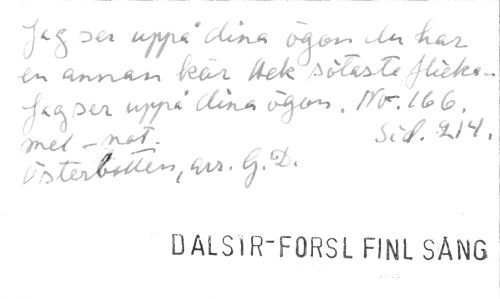 Jag ser uppå dina ögon du har
en annan kär Hek sötaste flicka -
Jag ser uppå dina ögon. No. 166.
mel - not. Sid. 214.
Österbotten, arr. G. D.
DALSTR-FORSL FINL SÅNG